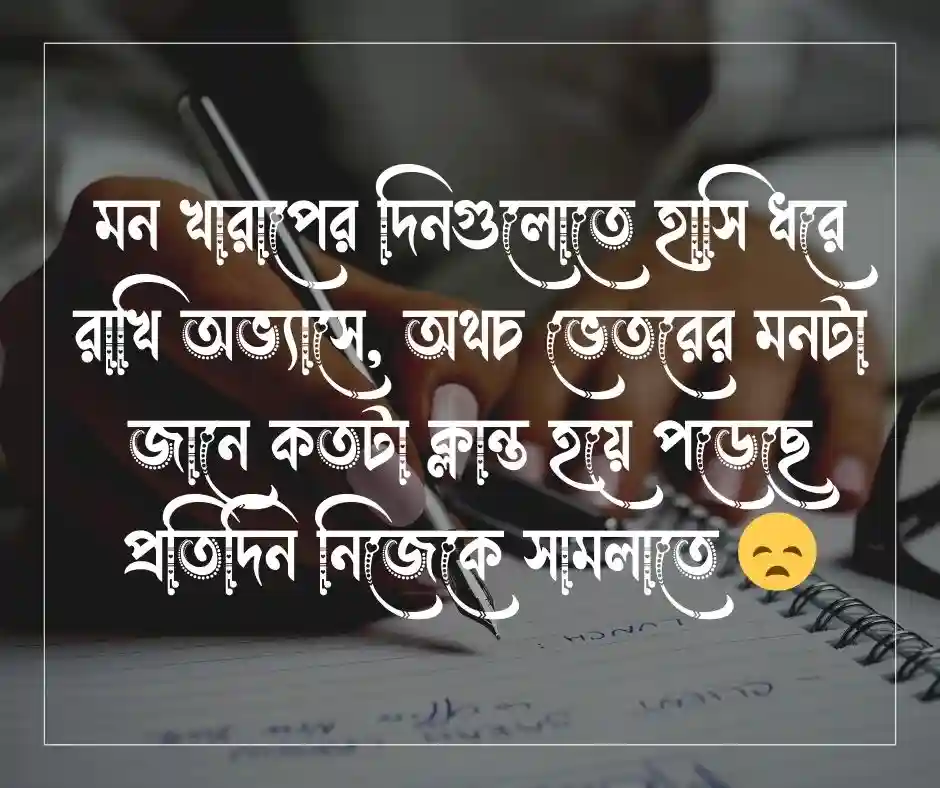 মন খারাপের দিনগুলোতে হাসি ধরে
রাখি অভ্যাসে, অথচ ভেতরের মনটা
জানে কতটা ক্লান্ত হয়ে পড়েছে
প্রতিদিন নিজেকে সামলাতে 😞
LUNCH :
- CLIENT